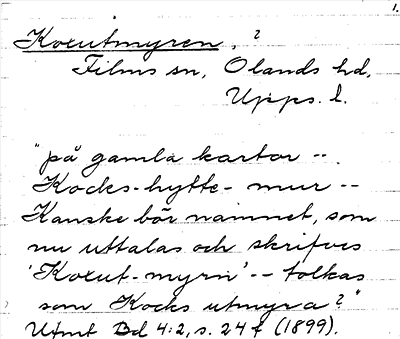 1.
Koxutmyren, ?
Films sn, Olands hd,
Upps. l.
"på gamla kartor --
Kocks-hytte- mur --
Kanske bör namnet, som
nu uttalas och skrifves
'Koxut-myrn' -- tolkas
som Kocks utmyra?"
Utmt Bd 4:2, s. 24 f (1899).